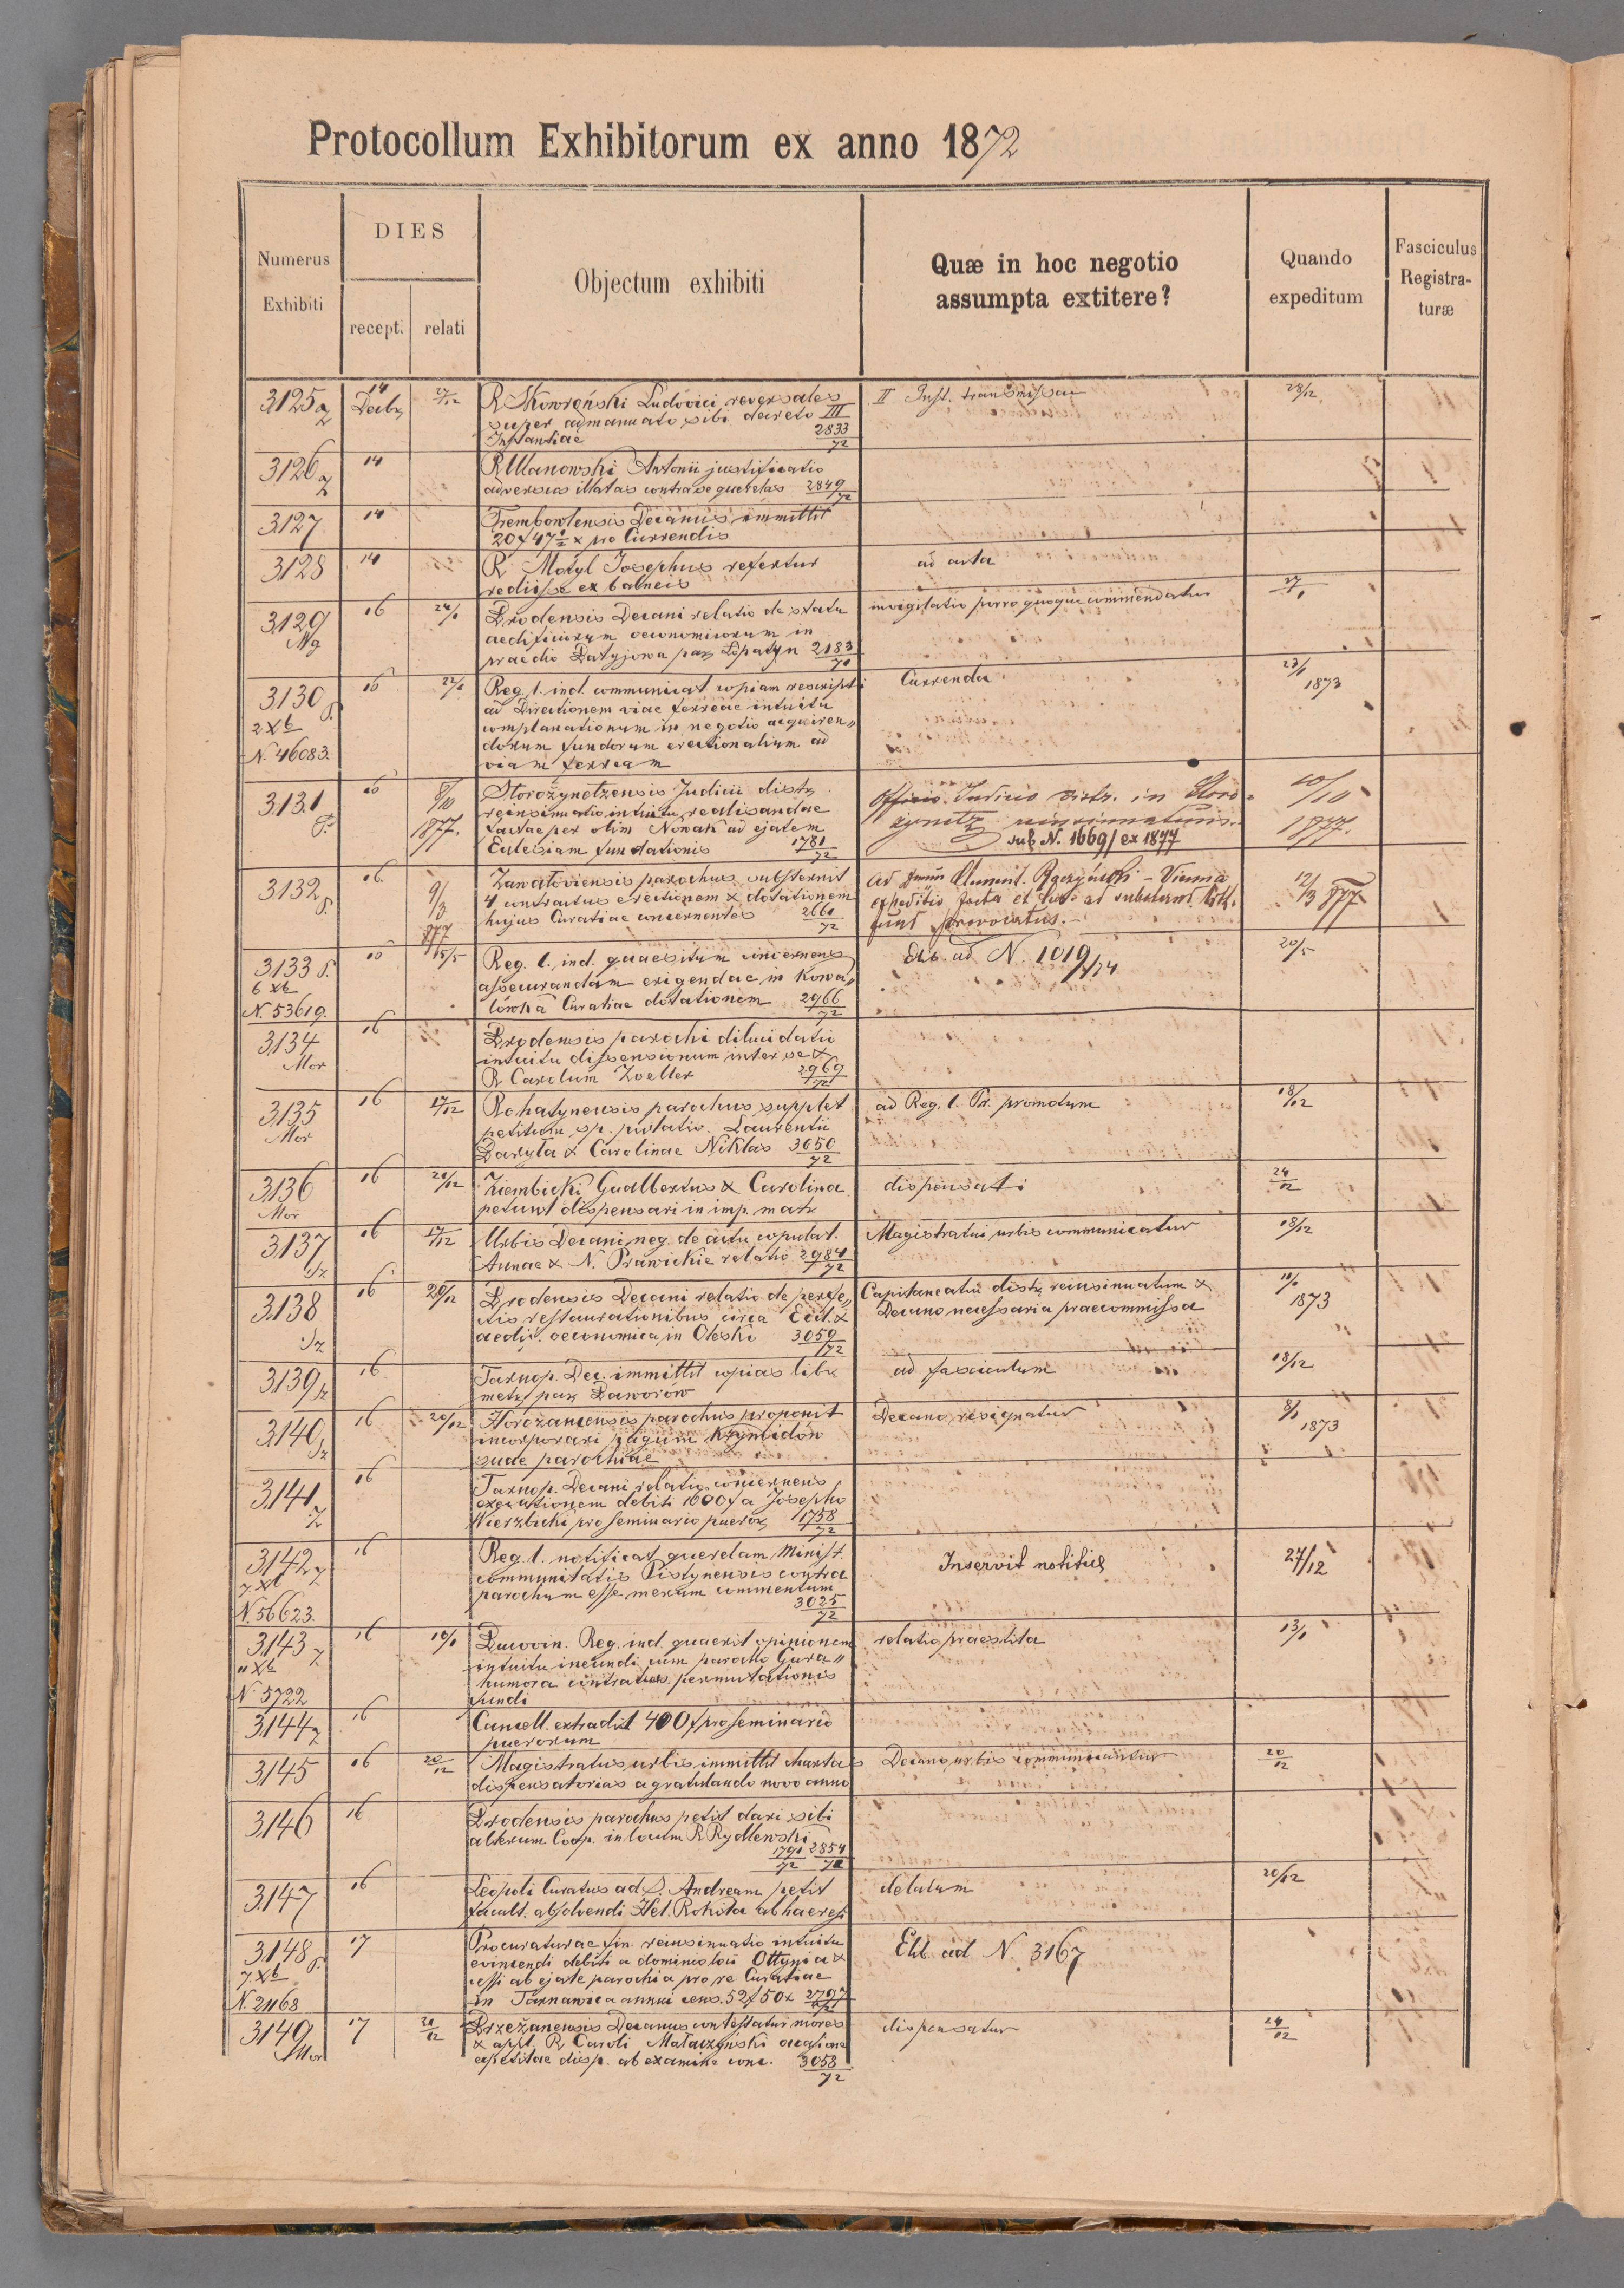 Protocollum Exhibitorum ex anno 1872
Numerus Exhibiti
DIES
recepti
relati
Objectum exhibiti
Quæ in hoc negotio
assumpta extitere?
Quando
expeditum
Fasciculus
Registra-
turæ
3125 14 27/12 R. Skowroński Ludovici reversales II Inst. transmissae 28/12
super admanuato sibi decreto III
Instantiae 2833/72
3126 14 R. Ulanowski Antonii justificatio
adversus illatas contra se querelas 2849/72
3127 14 Trembowlensis Decanus immittit
20 f 47 1/2 x pro Currendis
3128 14 R. Motyl Josephus refertur ad acta
rediisse ex balneis
3129 16 24/1 Brodensis Decani relatio de statu invigilatio porro quoque commendatur 27/1
Mg aedificiorum oeconomicorum in
praedio Batyjowa par. Łopatyn 2183/71
3130 16 22/1 Reg. l. ind. communicat copiam rescripti Currenda 23/1
ad Directionem viae ferreae intuitu 1873
2 Xb complanationum in negotio acquiren„
N. 46083. dorum fundorum erectionalium ad
viam ferream
3131 16 8/10 Storożynetzensis Judicii distr. Officio Judicio distr. in Storo= 10/10
1877. reinsinuatio intuitu realisandae żynetz reinsinuatum. 1877.
factae per olim Nowak ad ejatem sub N. 1669/ex 1877
Eclesiam fundationis 1781/72
3132 16. 9/3 Zawałoviensis parochus substernit 12/3 877
877 4 contractus erectionem & dotationem expeditio facta et
hujus Curatiae concernentes 2661/72
3133 16 15/5 Reg. l. ind. quaesitum concernens Exh. ad N. 1019/74 20/5
6 Xb assecurandam erigendae in Kowa„
N. 53619. lówka Curatiae dotationem 2966/72
3134 16 Brodensis parochi dilucidatio
Mor intuitu dissensionum inter se &
R. Carolum Zoeller 2969/72
3135 16 17/12 Rohatynensis parochus supplet ad Reg. l. Pr. promotum 18/12
Mor petitum Laurentii
Baryła & Carolinae Niklas 3050/72
3136 16 20/12 Ziembicki Gualbertus & Carolina dispensati 24/12
Mor petunt dispensari in imp. matr.
3137 16 17/12 Urbis Decani neg. de actu copulat. Magistratui urbis communicatur 18/12
Sz Annae & N. Prawickie relatio 2984/72
3138 16 20/12 Brodensis Decani relatio de perfe„ Capitaneatui distr. reinsinuatum & 11/1
Sz ctis restaurationibus circa Eccl. & Decano necessaria praecommissa 1873
aedif. oeconomica in Olesko 3059/72
3139 16 Tarnop. Dec. immittit copias libr. ad fasciculum 18/12
metr. par. Baworów
3140 16 20/12 Horożanensis parochus proponit Decano resignatur 8/1
Sz incorporari pagum 1873
suae parochiae
3141 16 Tarnop. Decani relatio concernens
executionem debiti 1600 f a Josepho
Wierzbicki pro seminario pueror. 1758/72
3142 16 Reg. l. notificat querelam Minist. Inservit notitiae 27/12
7 Xb communitatis Pistynensis contra
N. 56623. parochum esse merum commentum
3025/72
3143 16 10/1 Bucovin. Reg. ind. quaerit opinionem relatio praestita 13/1
11 Xb intuitu ineundi cum parocho Gura„
N. 5722 humora contractus permutationis
fundi
3144 16 Cancell. extradit 400 f pro seminario
puerorum
3145 16 20/12 Magistratus urbis immittit chartas Decano urbis communicantur 20/12
dispensatorias a gratulando novo anno
3146 16 Brodensis parochus petit dari sibi
alterum Coop. in locum R. Rydlewski
1791/72 2854/72
3147 16 Leopoli Curatus ad S. Andream petit delatum 20/12
facult. absolvendi Hel. Rokita ab haeresi
3148 17 Procuraturae fin. reinsinuatio intuitu Exh. ad N. 3167
7 Xb evincendi debiti a dominio loci Ottynia &
N. 21168 cessi ab ejate parochia pro re Curatiae
in Tarnawica annui cens. 52 f 50 x 2797/72
3149 17 21/12 Brzeżanensis Decanus contestatur mores dispensatur 24/12
Mor & appl. R. Caroli Małaczyński occasione
expetitae disp. ab examine conc. 3058/72